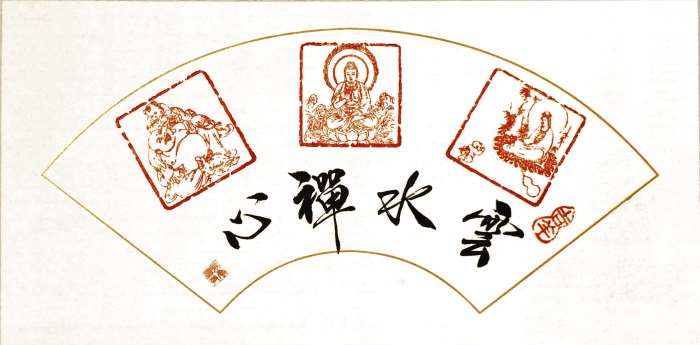 雲水禪心